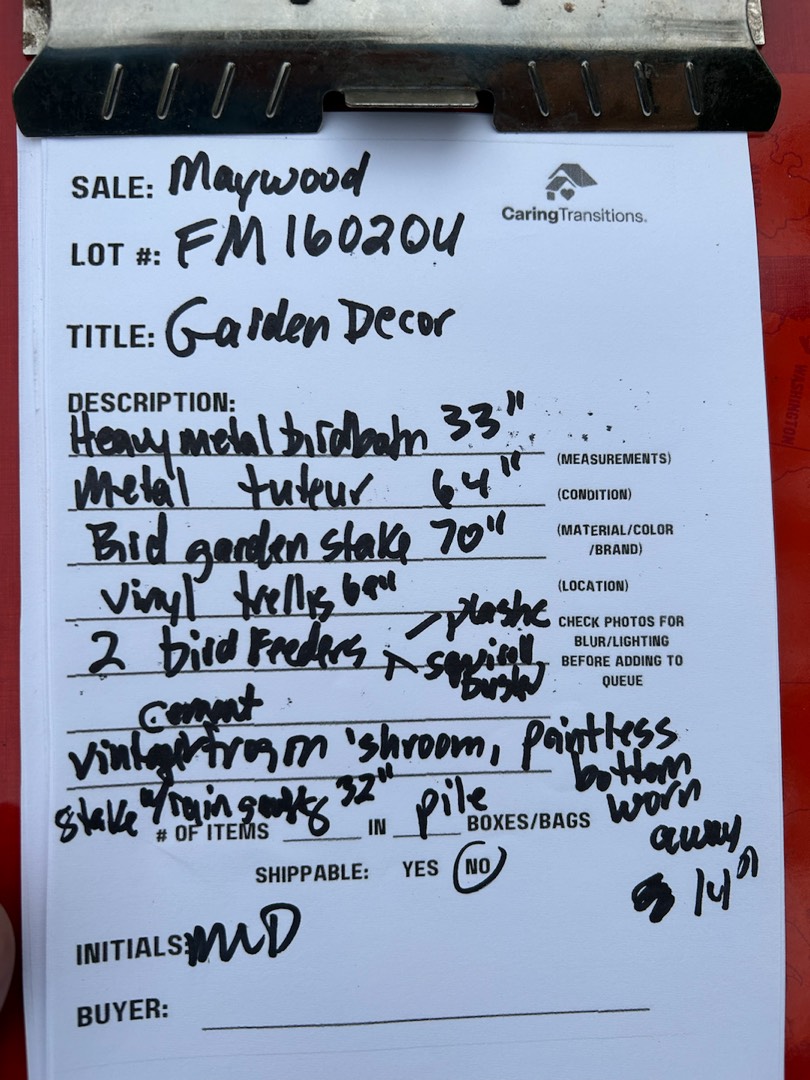 SALE: Maywood
CaringTransitions.
LOT #: FM16020U
TITLE: Garden Decor
DESCRIPTION:
Heavy metal birdbath 33"
(MEASUREMENTS)
Metal tuteur 64"
(CONDITION)
Bird garden stake 70"
(MATERIAL/COLOR
/BRAND)
Vinyl trellis 69"
(LOCATION)
2 bird Feeders - plastic
squirrell
buster
CHECK PHOTOS FOR
BLUR/LIGHTING
BEFORE ADDING TO
QUEUE
Cement
vintage frog on 'shroom, paintless
bottom
worn
away
14"
stake w/rain 32"
# OF ITEMS IN pile BOXES/BAGS
SHIPPABLE: YES NO
INITIALS: MD
BUYER:
WASHINGTON